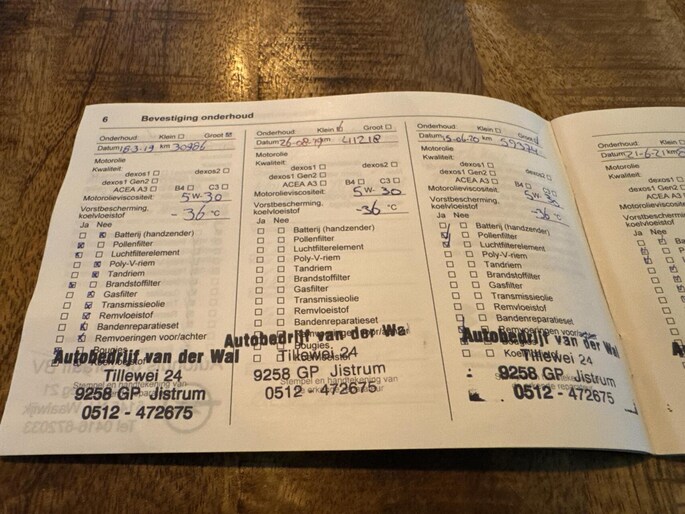 6 Bevestiging onderhoud
Onderhoud: Klein ☐ Groot ☒
Datum 18-3-19 km 30286
Motorolie
Kwaliteit:
dexos1 ☐ dexos2 ☐
dexos1 Gen2 ☐
ACEA A3 ☐ B4 ☐ C3 ☐
Motorolieviscositeit: 5W-30
Vorstbescherming,
koelvloeistof -36 °C
Ja Nee
Batterij (handzender)
Pollenfilter
Luchtfilterelement
Poly-V-riem
Tandriem
Brandstoffilter
Gasfilter
Transmissieolie
Remvloeistof
Bandenreparatieset
Remvoeringen voor/achter
Bougies
Autobedrijf van der Wal
Tillewei 24
Stempel en handtekening van
9258 GP Jistrum
0512 - 472675
Onderhoud: Klein ☒ Groot ☐
Datum km 41218
Motorolie
Kwaliteit:
dexos1 ☐ dexos2 ☐
dexos1 Gen2 ☐
ACEA A3 ☐ B4 ☐ C3 ☐
Motorolieviscositeit: 5W-30
Vorstbescherming,
koelvloeistof -36 °C
Ja Nee
Batterij (handzender)
Pollenfilter
Luchtfilterelement
Poly-V-riem
Tandriem
Brandstoffilter
Gasfilter
Transmissieolie
Remvloeistof
Bandenreparatieset
Autobedrijf van der Wa
Bougies
Tillewei 24
Stempel en handtekening van
9258 GP Jistrum
0512 - 472675
Onderhoud: Klein ☐ Groot
Datum 15-06-20 km
Motorolie
Kwaliteit:
dexos1 ☐ dexos2 ☐
dexos1 Gen2 ☐
ACEA A3 ☐ B4 ☐
Motorolieviscositeit: 5W-30
Vorstbescherming,
koelvloeistof -36 °C
Ja Nee
Batterij (handzender)
Pollenfilter
Luchtfilterelement
Poly-V-riem
Tandriem
Brandstoffilter
Gasfilter
Transmissieolie
Remvloeistof
Bandenreparatieset
Remvoeringen voor/achter
Autobedrijf van der Wal
Tillewei 24
9258 GP Jistrum
0512 - 472675
Onderhoud:
Datum 21-6-21 km
Motorolie
Kwaliteit:
dexos1
dexos1 Gen2
ACEA A3
Motorolieviscositeit:
Vorstbescherming,
koelvloeistof
Ja Nee